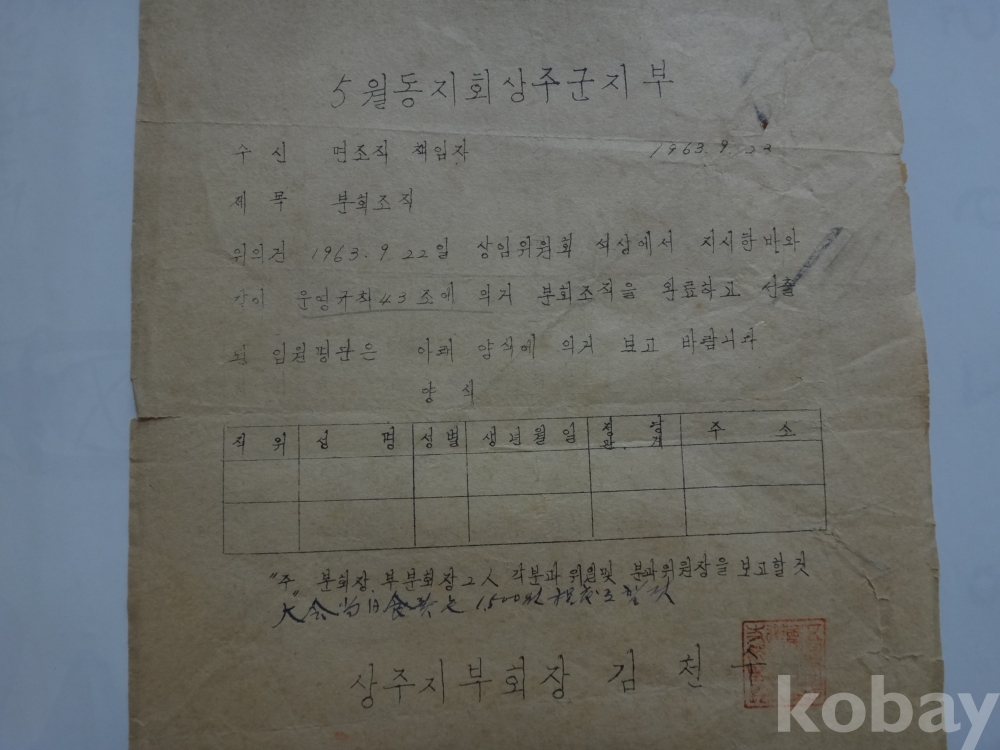 5월동지회상주군지부
수신 면조직 책임자 1963. 9. 23
제목 분회조직
위의건 1963. 9. 22일 상임위원회 석상에서 지시한바와
같이 운영규칙 43조에 의거 분회조직을 완료하고 선출
된 임원명단은 아래 양식에 의거 보고 바랍니다
양 식
직 위 성 명 성별 생년월일 정당관계 주 소
"주" 분회장 부분회장 2人 각분과 위원및 분과위원장을 보고할 것
大会当日会 1,500 할것
상주지부회장 김 천 수
kobay